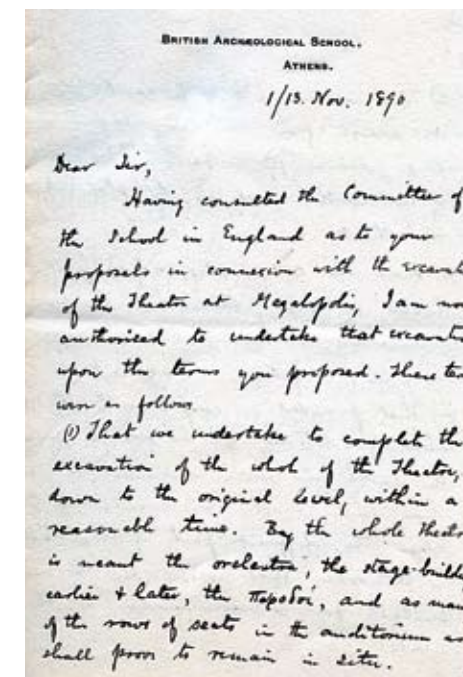 BRITISH ARCHÆOLOGICAL SCHOOL,
ATHENS.
1/13. Nov. 1890
Dear Sir,
Having consulted the Committee of
the School in England as to your
proposals in connexion with the excavat
of the Theatre at Megalopolis, I am no
authorised to undertake that excavati
upon the terms you proposed. These te
were as follows
(1) That we undertake to complete the
excavation of the whole of the Theatre,
down to the original level, within a
reasonable time. By the whole theatr
is meant the orchestra, the stage-buildi
earlier & later, the Πάροδοι, and as man
of the rows of seats in the auditorium as
shall prove to remain in situ.